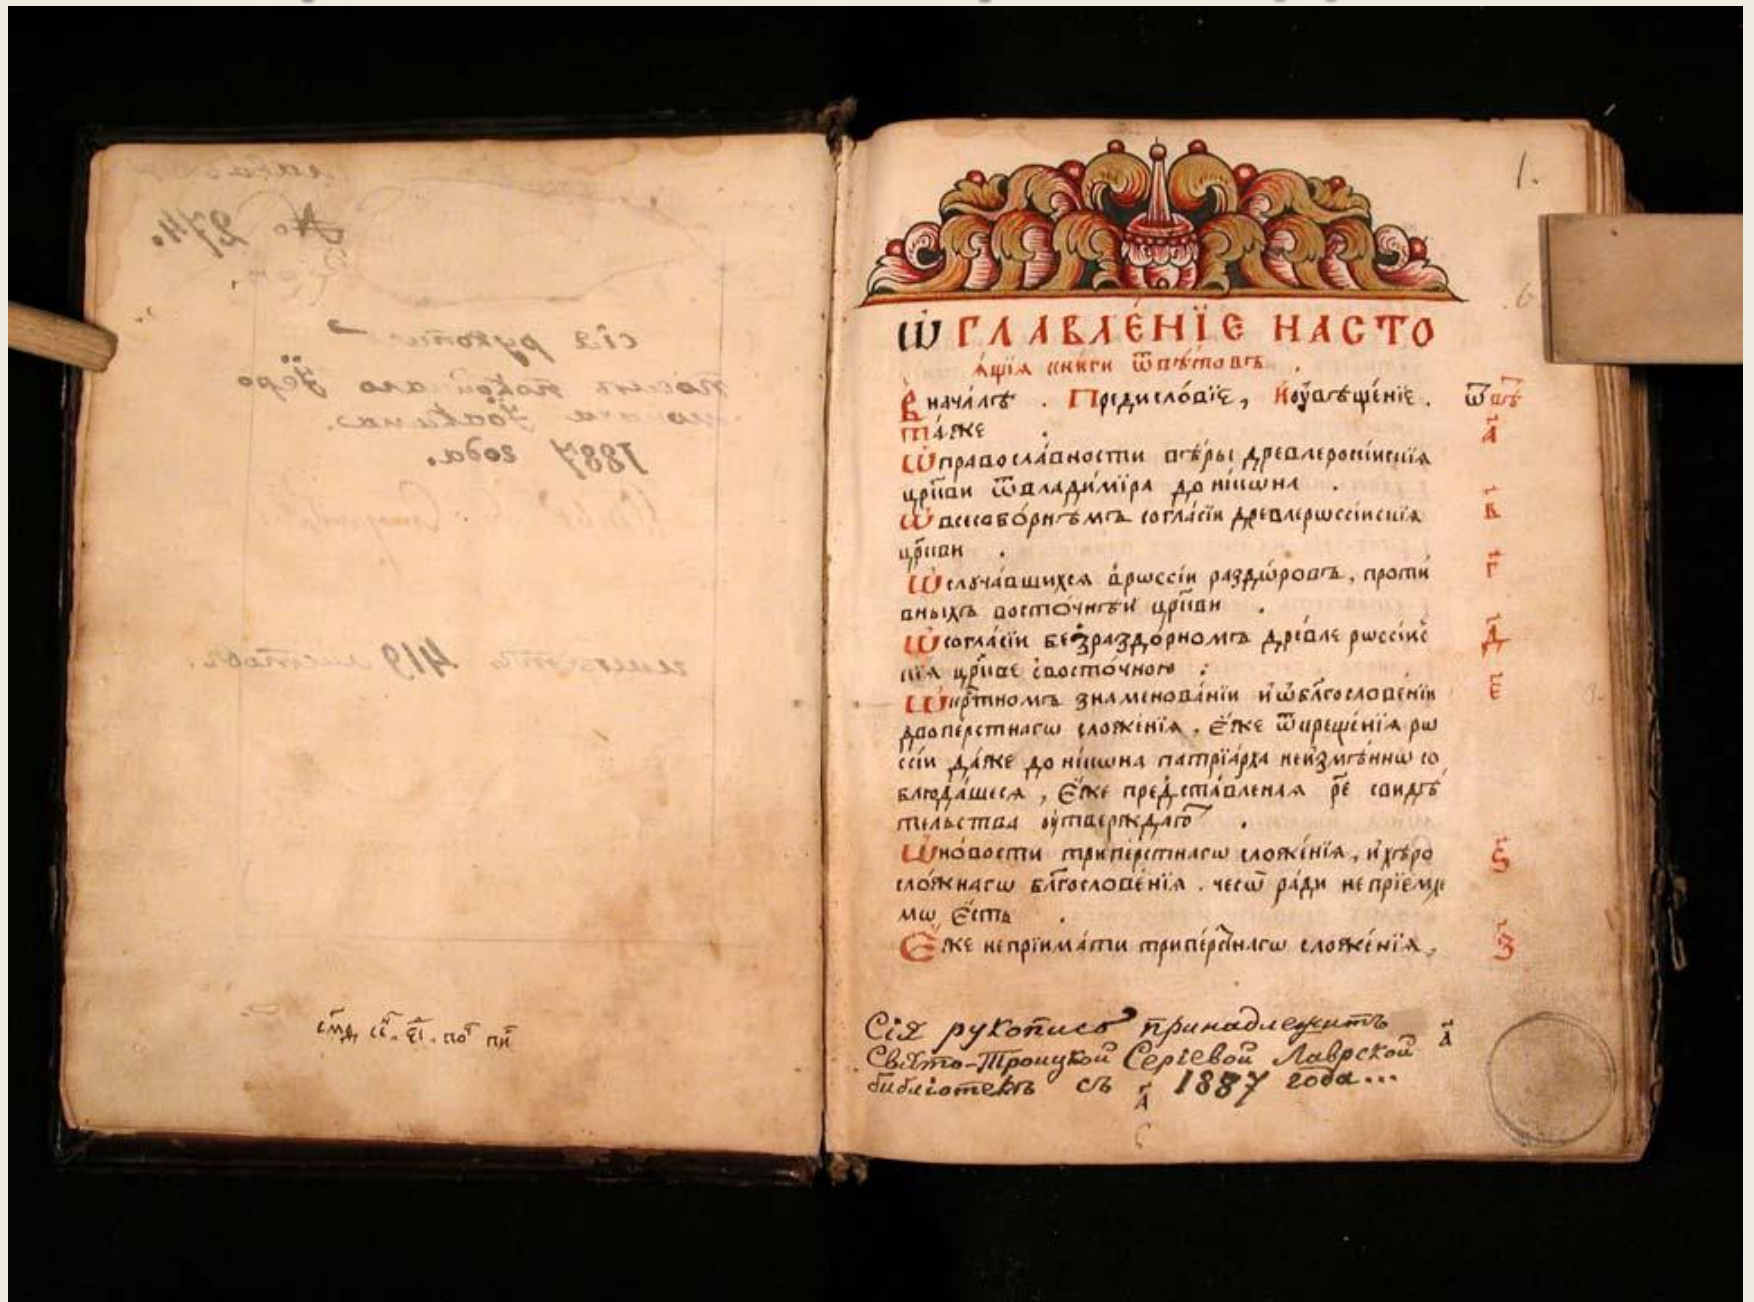 № 274.
сія рукопись
послѣ покойнаго Іеро
монаха Іоакима
1887 года.
419 листовъ.
1.
Ѡ҆ГЛАВЛЕ́НЇЕ НАСТО
ѧ́щїѧ кни́ги ѿвѣ́товъ
Внача́лѣ . Предисло́вїе, Иоувѣще́нїе . ѿвѣ
та́же . а҃
Ѡправосла́вности вѣ́ры древлеросі́искїѧ
цр҃кви ѿвлади́мїра до ні́кѡна .
Ѡвсесобо́рнѣмъ согла́сїи древлерѡссі́искїѧ в҃
цр҃кви .
Ѡслуча́вшихсѧ врѡссі́и раздѡ́ровъ, проти́ г҃
вныхъ восто́чнѣи цр҃кви .
Ѡсогла́сїи безраздо́рномъ дре́вле рѡссі́ис д҃
кїѧ цр҃кве свосто́чною :
Ѡкр҃тномъ знаменова́нїи иѡбл҃гослове́нїи є҃
двопе́рстнагѡ сложе́нїѧ . є́же ѿкреще́нїѧ рѡ
ссі́и да́же до ні́кѡна патрїа́рха неизмѣ́ннѡ со
блюда́шесѧ , Є́же предста́вленаѧ р҃е свидѣ́
тельства оутвержда́ютъ .
Ѡно́вости трипе́рстнагѡ сложе́нїѧ, ихѣро ѕ҃
сло́жнагѡ бл҃гослове́нїѧ . чесѡ̀ ра́ди непрїе́мле
мѡ є́сть .
Є́же непрїима́ти трипе́рстнагѡ сложе́нїѧ, з҃
Сія рукопись принадлежитъ а҃
Свято-Троицкой Сергіевой Лаврской
библіотекѣ съ 1887 года...
а҃